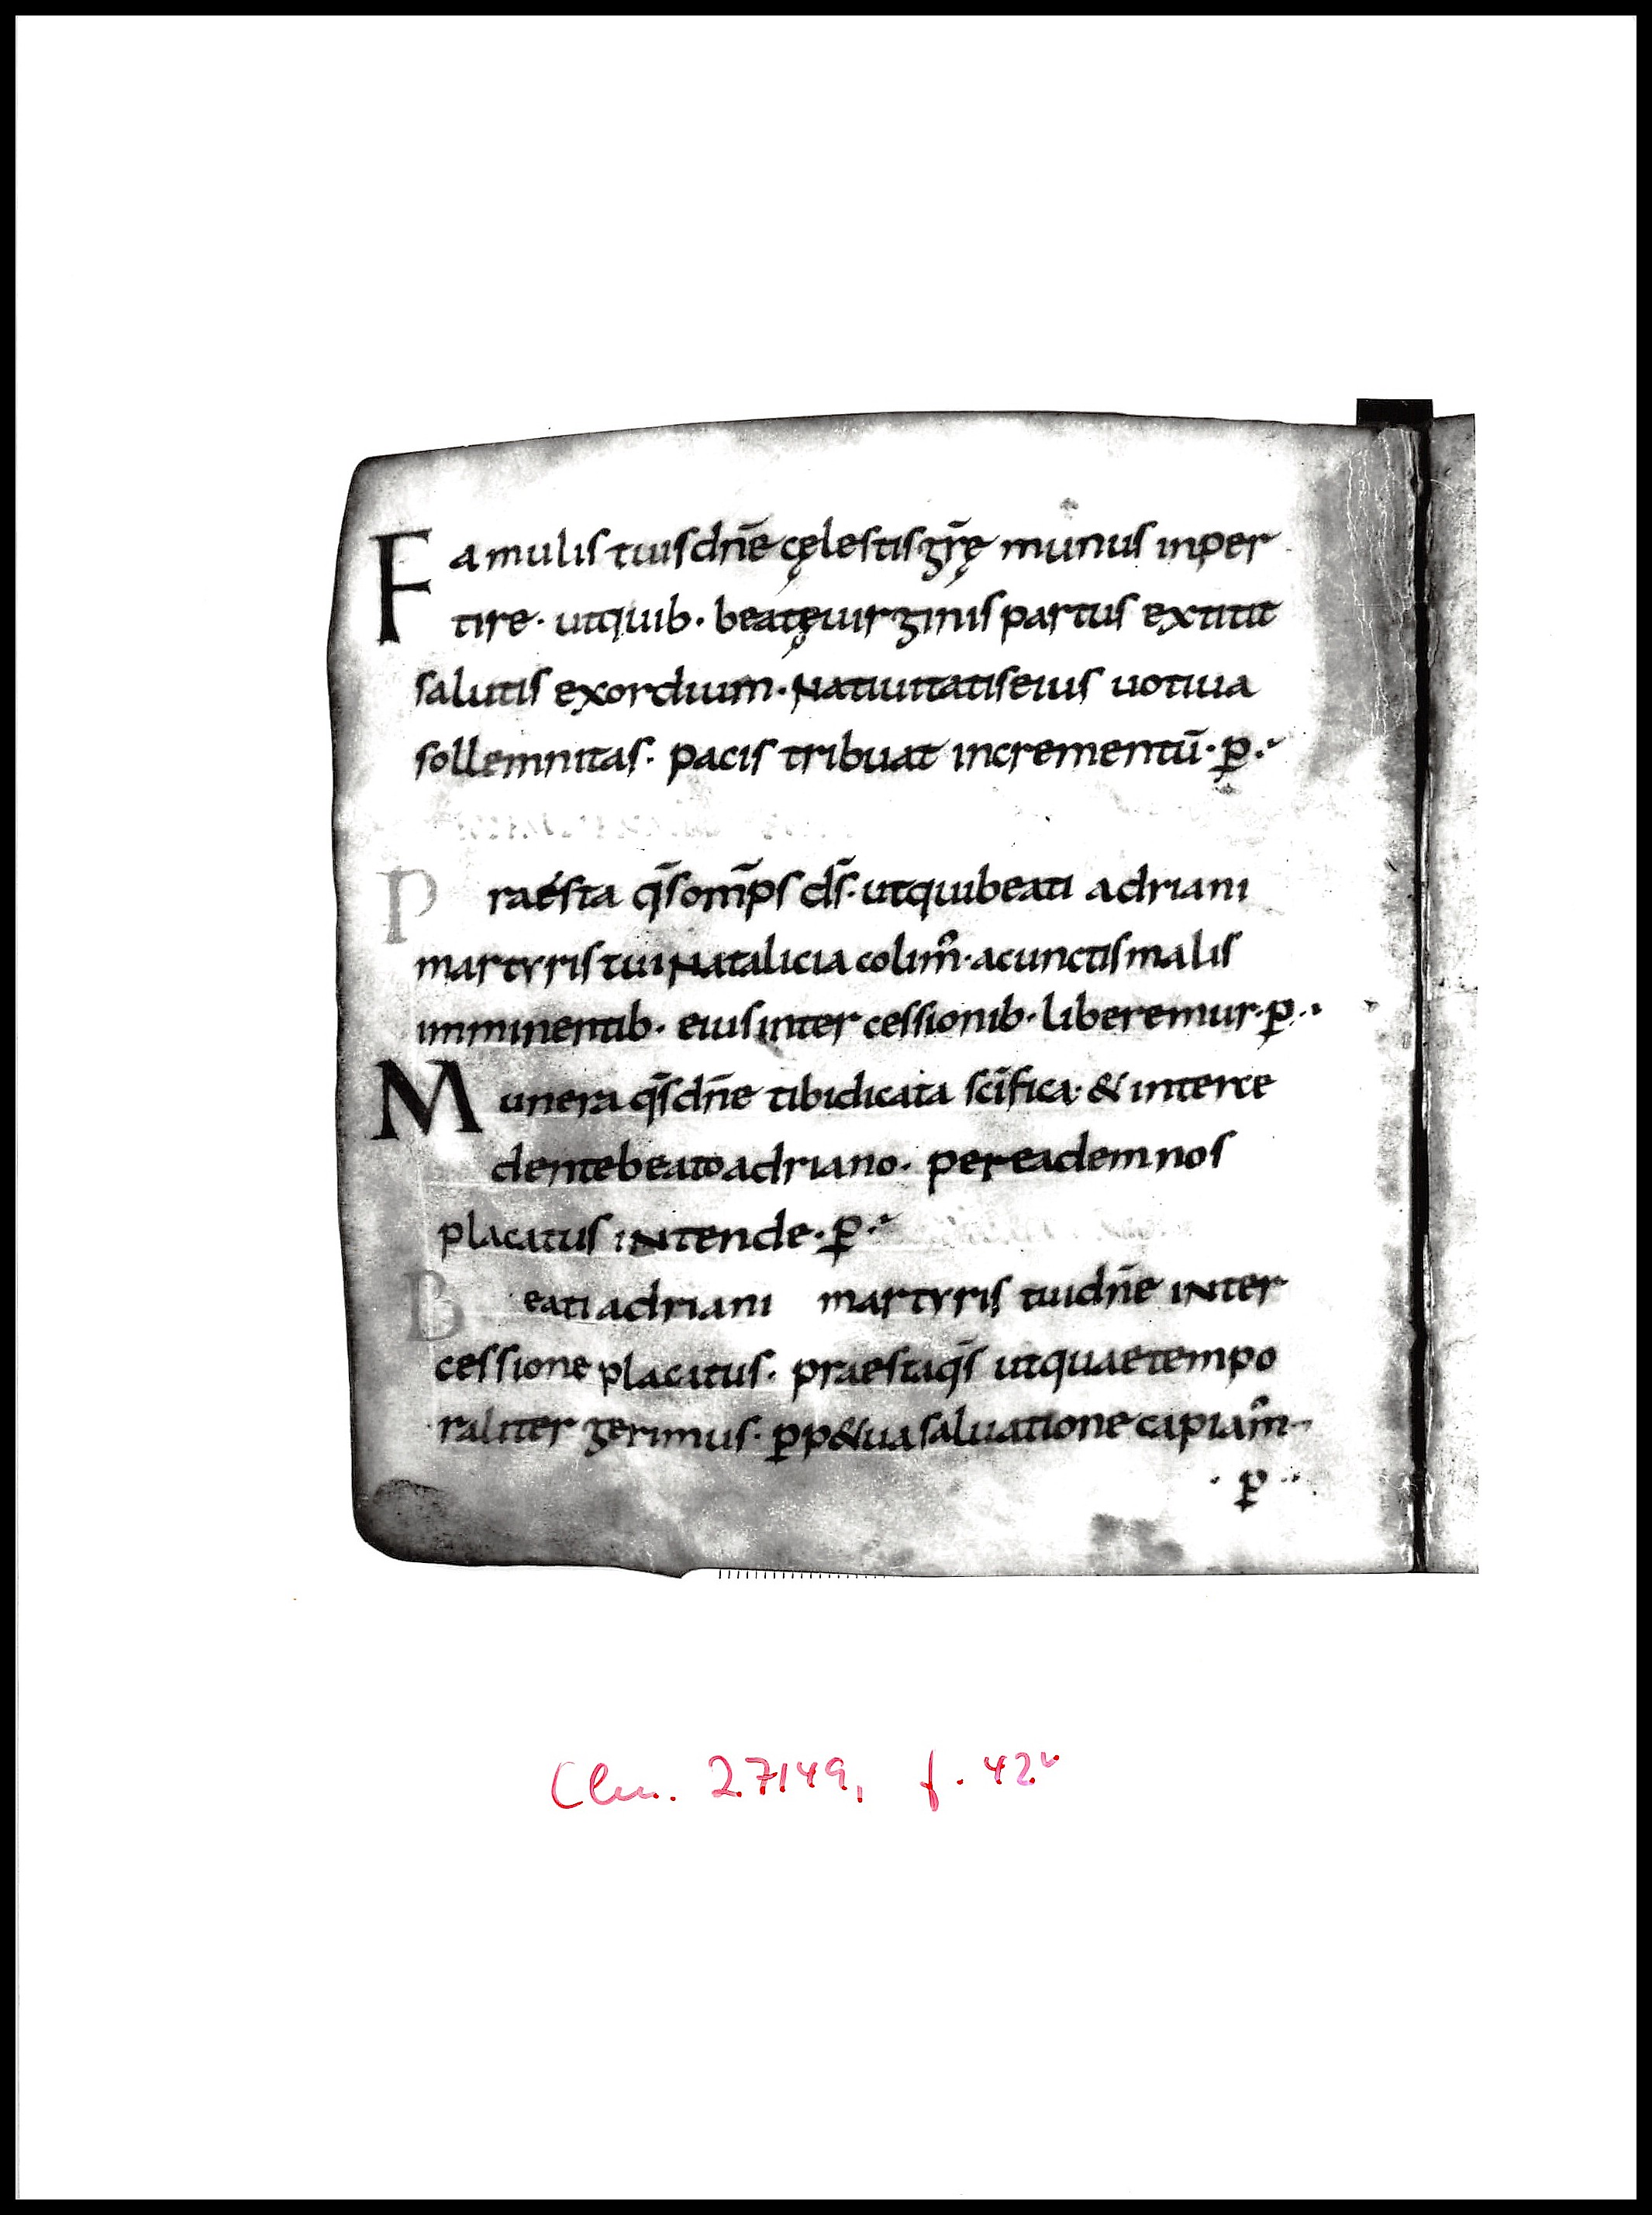 Famulis tuis dn̄e cęlestis gr̄ę munus inper
tire· ut quib· beatę uirginis partus extitit
salutis exordium· Natiuitatis eius uotiua
sollemnitas· pacis tribuat incrementū· p̲·
Praesta q̄s om̄ps ds̄· ut qui beati adriani
martyris tui Natalicia colim̄· a cunctis malis
imminentib· eius inter cessionib· liberemur· p̲·
Munera q̄s dn̄e tibi dicata sc̄ifica· & interce
dente beato adriano· per eadem nos
placatus iNtende· p̲·
Beati adriani martyris tui dn̄e iNter
cessione placatus· praesta q̄s ut quae tempo
raliter gerimus· p̲p&ua saluatione capiam̄·
· p̲ ·
Clm. 27149, f. 42v